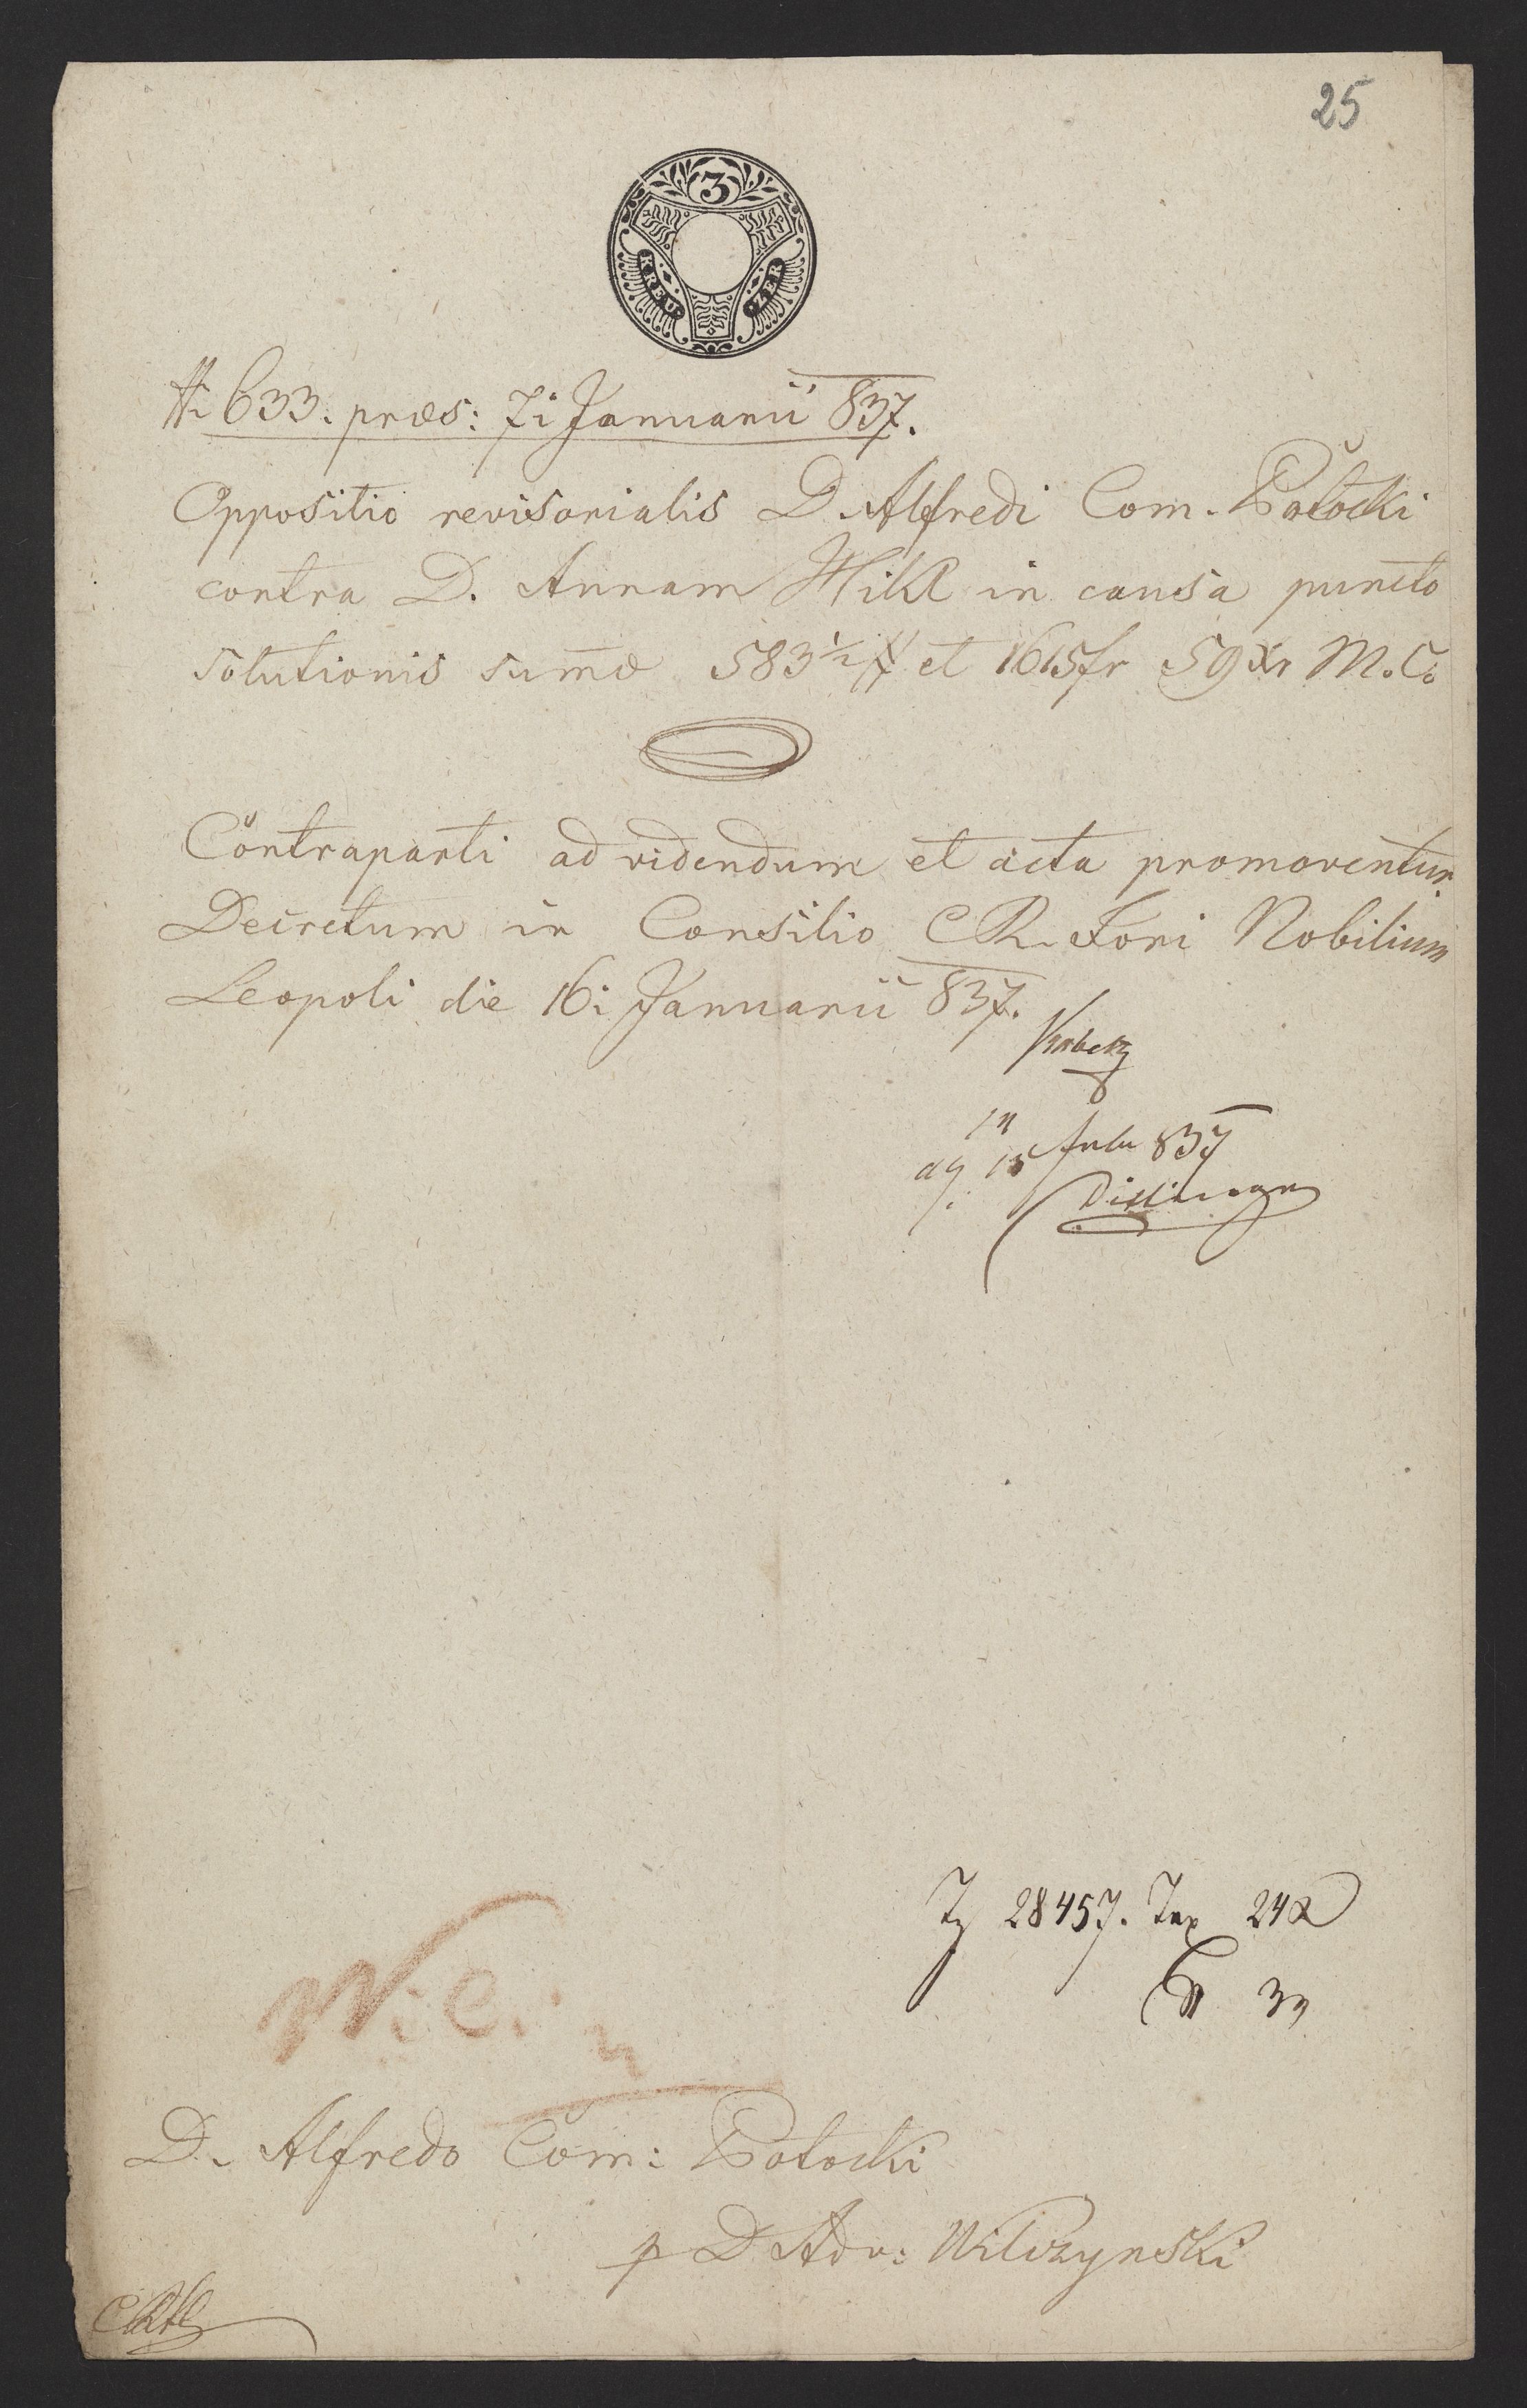 25
3
KREU ZER
N: 633. præs: 7i Januarii 837.
Oppositio revisorialis D. Alfredi Com. Potocki
contra D. Annam Hikl in causa puncto
solutionis sumæ 583½ # et 1615 fr 59 xr M. C.
Contraparti ad videndum et acta promoventur
Decretum in Consilio C R. Fori Nobilium
Leopoli die 16i Januarii 837.
15 837
28457. Tax 24
W: C.
D. Alfredo Com: Potocki
p D Adv: Wilczynski